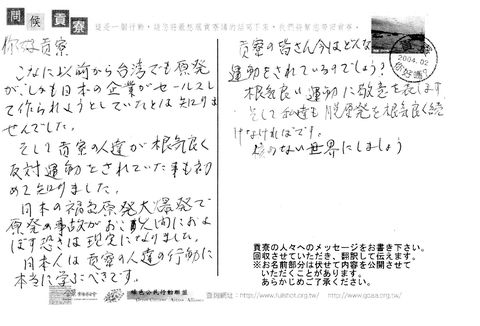 問候貢寮
你好貢寮
こんなに以前から台湾でも原発
が、しかも日本の企業がセールスし
て作られようとしていたとは知りま
せんでした。
そして貢寮の人達が根気良く
反対運動をされていた事も初
めて知りました。
日本の福島原発大爆発で
原発の事故がおこり人間におよ
ぼす恐さは現実になりました。
日本人は貢寮の人達の行動に
本当に学ぶべきです。
綠色公民行動聯盟
Green Citizens' Action Alliance
貢寮の皆さん今はどんな
運動をされているのでしょう?
根気良い運動に敬意を表します。
そして私達も脱原発を根気良く続
けなければです。
核のない世界にしましょう
貢寮
2004.02
你好嗎?
貢寮の人々へのメッセージをお書き下さい。
回収させていただき、翻訳して伝えます。
※お名前部分は伏せて内容を公開させて
いただくことがあります。
あらかじめご了承ください。
查詢網址:http://www.fullshot.org.tw/ http://www.gcaa.org.tw/